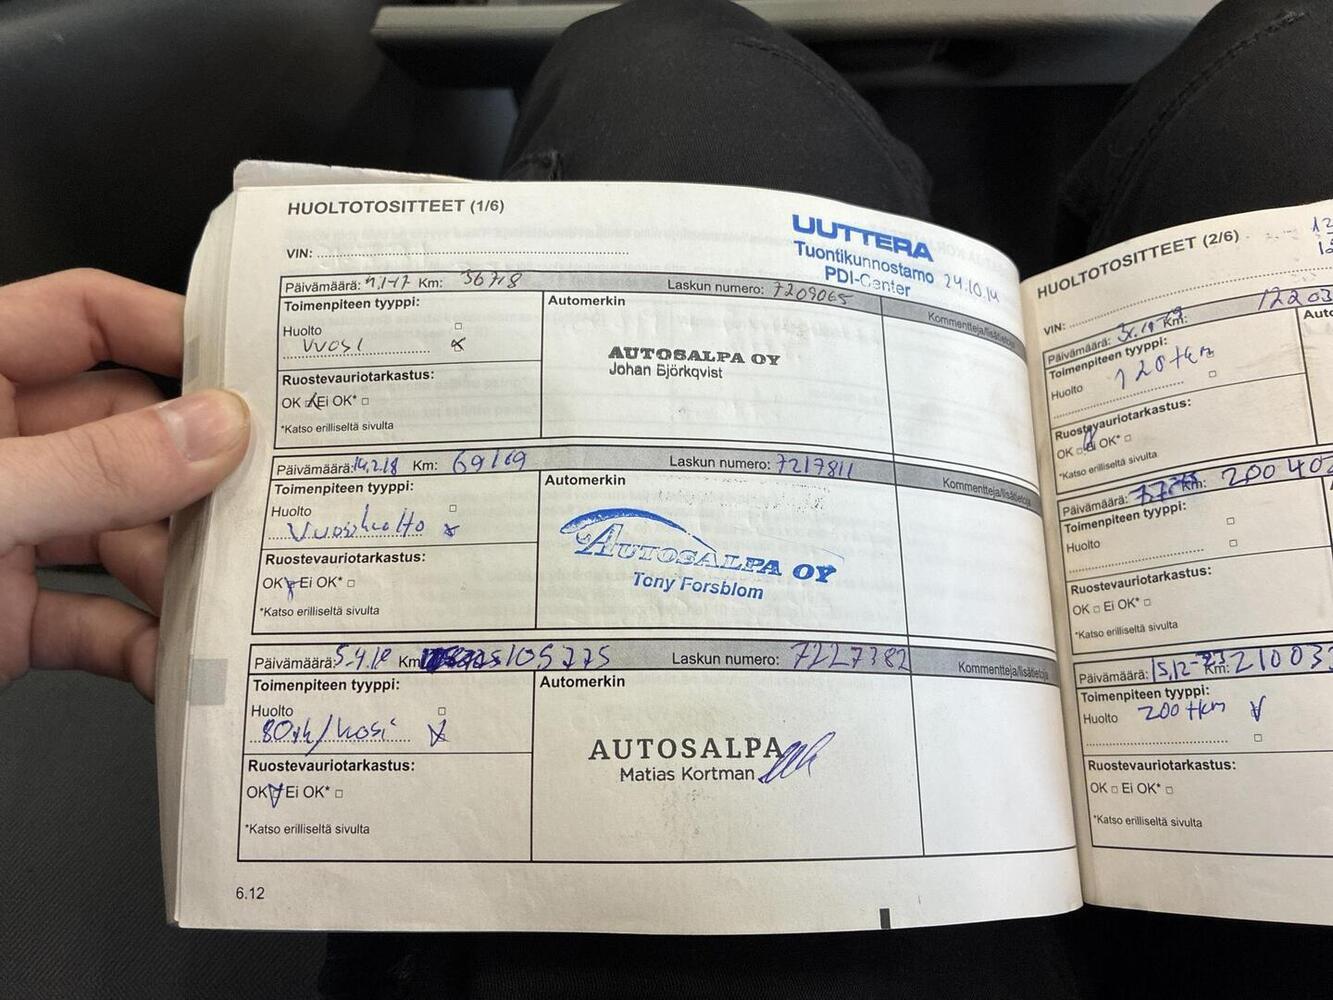 HUOLTOTOSITTEET (1/6)
UUTTERA
Tuontikunnostamo 24.10.14
PDI-Center
VIN:
Päivämäärä: Km: 36718 Laskun numero: 7209065
Toimenpiteen tyyppi:
Automerkin
Kommentteja/lisätietoja
Huolto
Vuosi
AUTOSALPA OY
Johan Björkqvist
Ruostevauriotarkastus:
OK Ei OK*
*Katso erilliseltä sivulta
Päivämäärä: 14.2.18 Km: 69169 Laskun numero: 7217811
Toimenpiteen tyyppi:
Automerkin
Kommentteja/lisätietoja
Huolto
Vuosihuolto
AUTOSALPA OY
Tony Forsblom
Ruostevauriotarkastus:
OK Ei OK*
*Katso erilliseltä sivulta
Päivämäärä: Km: 105775 Laskun numero: 7227382
Toimenpiteen tyyppi:
Automerkin
Kommentteja/lisätietoja
Huolto
AUTOSALPA
Matias Kortman
Ruostevauriotarkastus:
OK Ei OK*
*Katso erilliseltä sivulta
6.12
HUOLTOTOSITTEET (2/6)
VIN:
Päivämäärä: Km:
Toimenpiteen tyyppi:
Huolto 120tkm
Ruostevauriotarkastus:
OK Ei OK*
*Katso erilliseltä sivulta
Päivämäärä: Km: 200402
Toimenpiteen tyyppi:
Huolto
Ruostevauriotarkastus:
OK Ei OK*
*Katso erilliseltä sivulta
Päivämäärä: 15.12-23 Km: 210033
Toimenpiteen tyyppi:
Huolto 200tkm
Ruostevauriotarkastus:
OK Ei OK*
*Katso erilliseltä sivulta